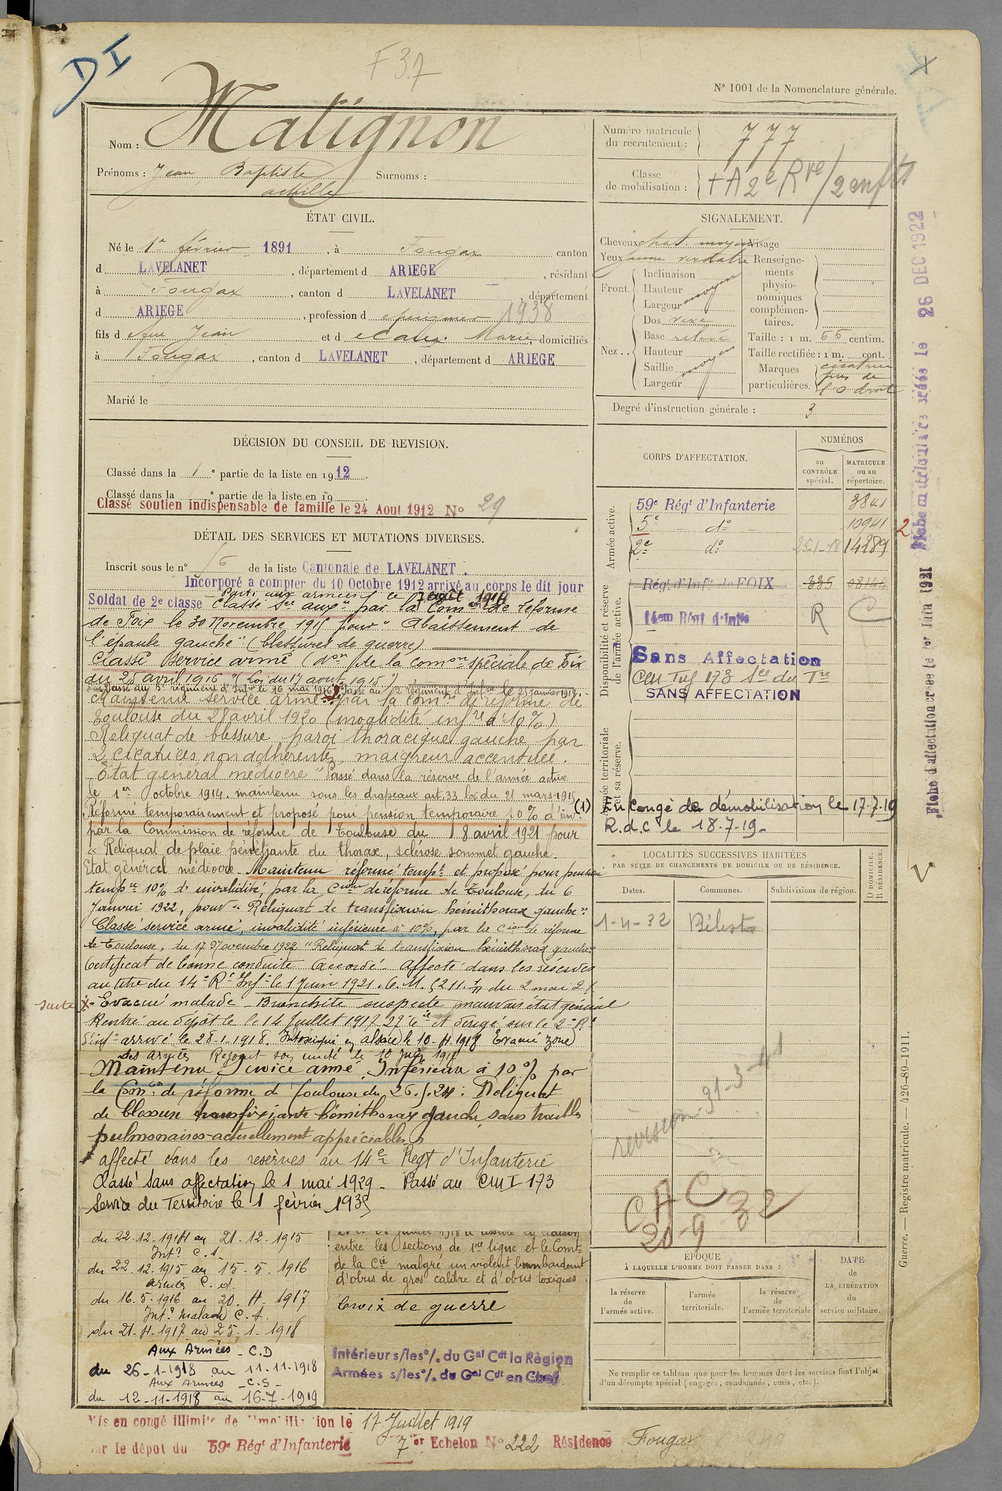 D I
F 37
N° 1001 de la Nomenclature générale.
Nom : Matignon
Prénoms : Jean Baptiste Surnoms :
achille
Numéro matricule du recrutement : 777
Classe de mobilisation : + A 2e Rve / 2 enfts
ÉTAT CIVIL.
Né le 1er février 1891, à Fougax canton
d LAVELANET, département d ARIEGE, résidant
à Fougax, canton d LAVELANET, département
d ARIEGE, profession d 1938
fils d Jean et d Marie, domiciliés
à Fougax, canton d LAVELANET, département d ARIEGE
Marié le
SIGNALEMENT.
Cheveux chat. moyen Visage
Yeux jaune verdatre
Renseignements physionomiques complémentaires.
Front.
Inclinaison
Hauteur
Largeur moyen
Nez..
Dos
Base relevé
Hauteur
Saillie moyen
Largeur
Taille : 1 m. 66 centim.
Taille rectifiée : 1 m. cent.
Marques particulières. cicatrice
Degré d'instruction générale : 3
DÉCISION DU CONSEIL DE REVISION.
Classé dans la 1e partie de la liste en 1912.
Classé dans la e partie de la liste en 19
Classé soutien indispensable de famille le 24 Aout 1912 N° 29
DÉTAIL DES SERVICES ET MUTATIONS DIVERSES.
Inscrit sous le n° de la liste Cantonale de LAVELANET.
Incorporé a compter du 10 Octobre 1912 arrivé au corps le dit jour
Soldat de 2e classe Parti aux armées le août 1914
Classé Sce auxre par la Comon de réforme
de Foix le 30 Novembre 1915 pour "Abaissement de
l'épaule gauche" (blessures de guerre)
Classé service armé (Don de la comon spéciale de Foix
du 25 avril 1916 (Loi du 17 aout 1915)
Passé au 5e régiment d'Infie le 16 mai 1916. Passé au 2e régiment d'Infie le 25 janvier 1918.
Maintenu service armé par la Comon de réforme de
Toulouse du 21 avril 1920 (invalidité infre à 10%)
Reliquat de blessure paroi thoracique gauche, par
2 cicatrices non adhérentes, maigreur accentuée.
Etat général médiocre" Passé dans la réserve de l'armée active
le 1er octobre 1914. maintenu sous les drapeaux art. 33 loi du 21 mars 1905 (1)
Réformé temporairement et proposé pour pension temporaire 10% d'inv.
par la Commission de réforme de Toulouse du 8 avril 1921 pour
"Reliquat de plaie pénétrante du thorax, sclérose sommet gauche.
Etat général médiocre. Maintenu réformé tempre et proposé pour pension
tempre 10% d'invalidité, par la Cion de réforme de Toulouse, du 6
Janvier 1922, pour "Reliquat de transfixion hémithorax gauche".
Classé service armé, invalidité inférieure à 10%, par la Cion de réforme
de Toulouse, du 17 Novembre 1922 "Reliquat de transfixion hémithorax gauche"
Certificat de bonne conduite Accordé. Affecté dans les réserves
au titre du 14e Rt Inf. le 1 Juin 1921.
suite X Evacué malade - Bronchite suspecte mauvais état général
Rentré au dépôt le 14 Juillet 1917 27e Cie et dirigé sur le 2e Rt
d'Inf arrivé le 25-1-1918. Intoxiqué en Alsace Evacué zone
des armées Rejoint son unité le 10 1918
Maintenu Service armé, Inférieur à 10% par
la Comon de réforme de Toulouse du 26.5.24 : Reliquat
de blessure transfixiante hémithorax gauche, sans troubles
pulmonaires actuellement appréciables
affecté dans les reserves au 14e Regt d'Infanterie
Classé Sans affectation le 1 mai 1929 - Passé au CMI 173
Service du Territoire le 1 février 1935
CORPS D'AFFECTATION.
NUMÉROS
AU CONTRÔLE SPÉCIAL.
MATRICULE OU AU RÉPERTOIRE.
Armée active.
59e Régt d'Infanterie 3841
5e do 10941
2e do 25-1-18 14289
Disponibilité et réserve de l'armée active.
Régt d'Infie de FOIX 335
14em Régt d'Infie R C
Sans Affectation
173 Sce du Tre
SANS AFFECTATION
Armée territoriale et sa réserve.
En congé de démobilisation le 17-7-19
R.d.C. le 18-7-19-
LOCALITÉS SUCCESSIVES HABITÉES
PAR SUITE DE CHANGEMENTS DE DOMICILE OU DE RÉSIDENCE.
Dates. Communes. Subdivisions de région. D DOMICILE. R RÉSIDENCE.
1-4-32 Bélesta
révision 31-3-41
CAC 32
20-9
ÉPOQUE
À LAQUELLE L'HOMME DOIT PASSER DANS :
la réserve de l'armée active.
l'armée territoriale.
la réserve de l'armée territoriale
DATE de LA LIBÉRATION du service militaire.
Ne remplir ce tableau que pour les hommes dont les services font l'objet
d'un décompte spécial (engagés, condamnés, omis, etc.).
du 22-12-1914 au 21-12-1915
Intr C.S.
du 22-12-1915 au 15-5-1916
armées C.d.
du 16-5-1916 au 20-11-1917
Intr malade C.S.
du 21-11-1917 au 25-1-1918
Aux Armées - C.D
du 26-1-1918 au 11-11-1918
Aux Armées - C.S -
du 12-11-1918 au 16-7-1919
entre les sections de 1re ligne et le Comt
de la Cie malgré un violent bombardement
d'obus de gros calibre et d'obus toxiques.
Croix de guerre
Intérieur s/les o/. du Gal Cdt la Région
Armées s/les o/. du Gal Cdt en Chef
Mis en congé illimité de démobilisation le 17 Juillet 1919
sur le dépot du 59e Régt d'Infanterie 7e Echelon N° 222 Résidence Fougax
Fiche matriculaire créée le 26 DEC 1922
Fiche d'affectation créée le 1er Juin 1921
Guerre. — Registre matricule. — 426-89-1911.